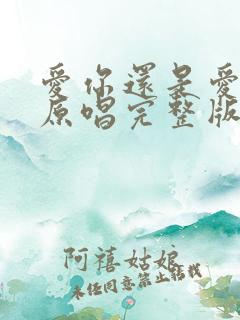 愛你還是愛
原唱完整版
阿禧姑娘
未经同意禁止转载